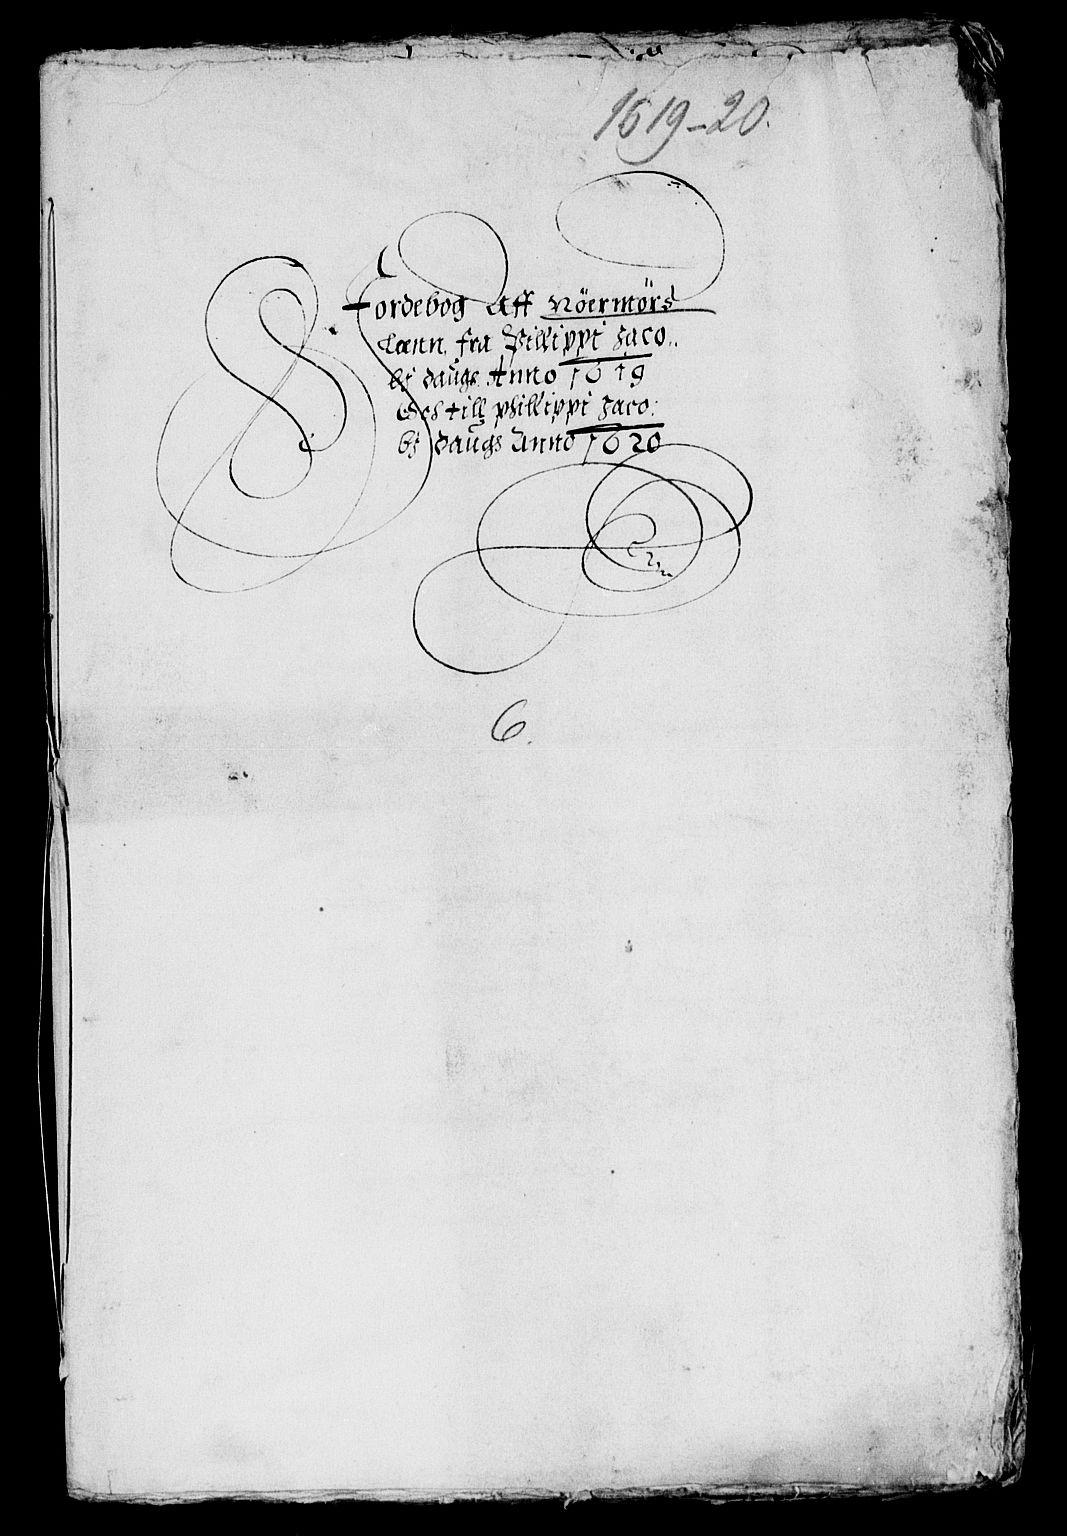 1619-20.
Jordebog Aff Nöermörs
Lænn, fra Phillippi Jaco:
bj daugs Anno 1619
Och till phillippi Jaco:
bj daugs Anno 1620
6.